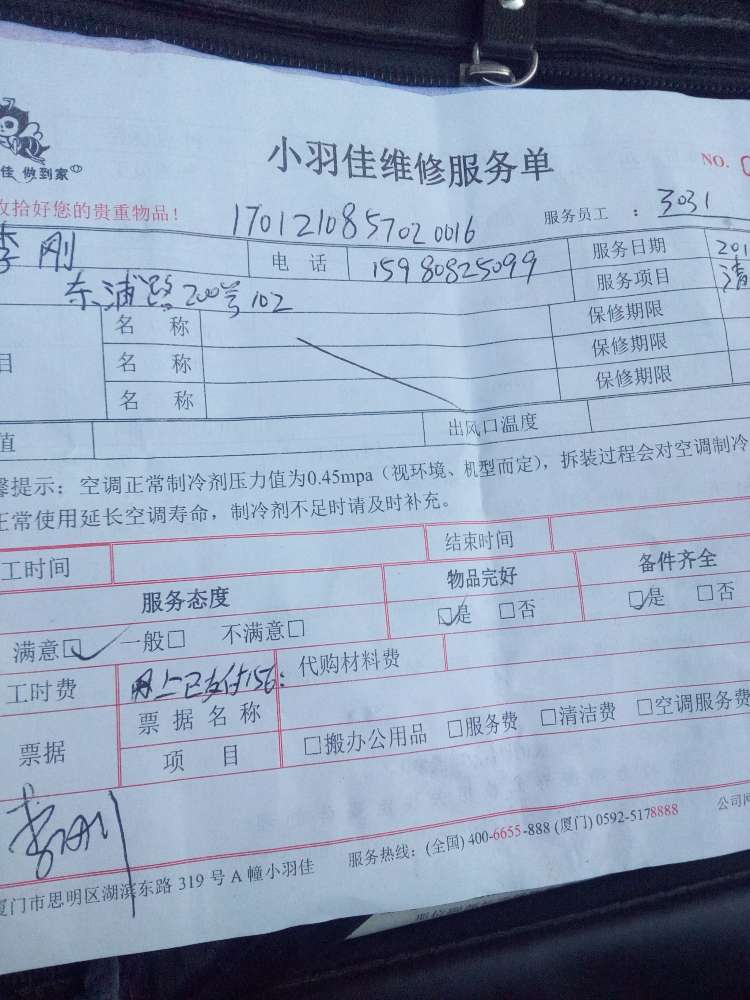 佳 做到家
小羽佳维修服务单
NO.
收拾好您的贵重物品!
170121085702 0016
服务员工 : 3031
李刚
电 话
15980825099
服务日期
201
东浦路200号102
服务项目
清
目
名 称
保修期限
名 称
保修期限
名 称
保修期限
值
出风口温度
馨提示: 空调正常制冷剂压力值为0.45mpa(视环境、机型而定), 拆装过程会对空调制冷
正常使用延长空调寿命, 制冷剂不足时请及时补充。
工时间
结束时间
服务态度
物品完好
备件齐全
满意☑ 一般□ 不满意□
☑是 □否
☑是 □否
工时费
网上已支付156:
代购材料费
票据
票据名称
项 目
□搬办公用品 □服务费 □清洁费 □空调服务费
李刚
厦门市思明区湖滨东路 319 号 A 幢小羽佳
服务热线: (全国) 400-6655-888 (厦门) 0592-5178888
公司网